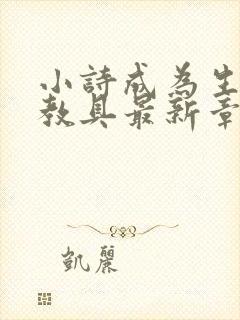 小詩成為生
教具最新章
凱麗